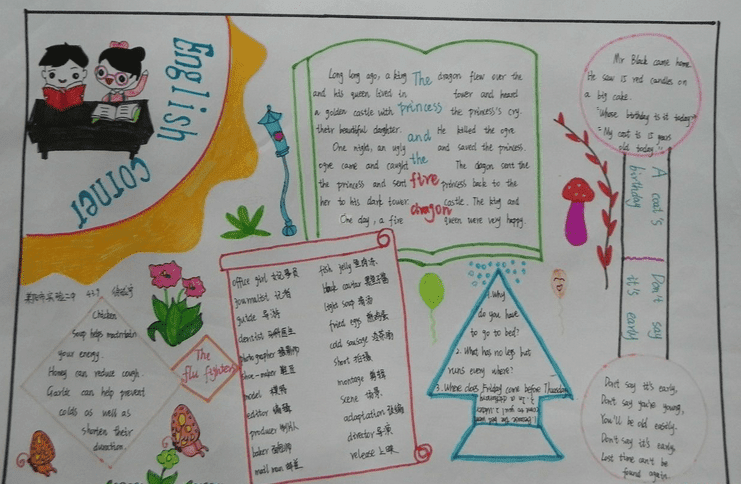 English
corner
Long long ago, a king
and his queen lived in
a golden castle with
their beautiful daughter.
One night, an ugly
ogre came and caught
the princess and sent
her to his dark tower.
One day, a fire
The
princess
and
the
fire
dragon
dragon flew over the
tower and heard
the princess's cry.
He killed the ogre
and saved the princess.
The dragon sent the
princess back to the
castle. The king and
queen were very happy.
Mr Black came home.
He saw 15 red candles on
a big cake.
"Whose birthday is it today?"
"My coat is 15 years
old today."
A coat's
birthday
Don't say
it's early
Don't say it's early,
Don't say you're young,
You'll be old easily.
Don't say it's early,
Lost time can't be
found again.
Chicken
Soup helps maintain
your energy.
Honey can reduce cough.
Garlic can help prevent
colds as well as
shorten their
duration.
The
flu fighters
office girl
journalist 记者
guide 导游
dentist 牙科医生
photographer 摄影师
shoe-maker
model 模特
editor 编辑
producer 制片人
baker
mail man
fish jelly 鱼冻
black caviar
light soup 清汤
fried eggs
cold sausage
short
montage 剪辑
scene 场景
adaptation 改编
director 导演
release 上映
1. Why
do you have
to go to bed?
2. What has no legs but
runs every where?
3. Where does Friday come before Thursday